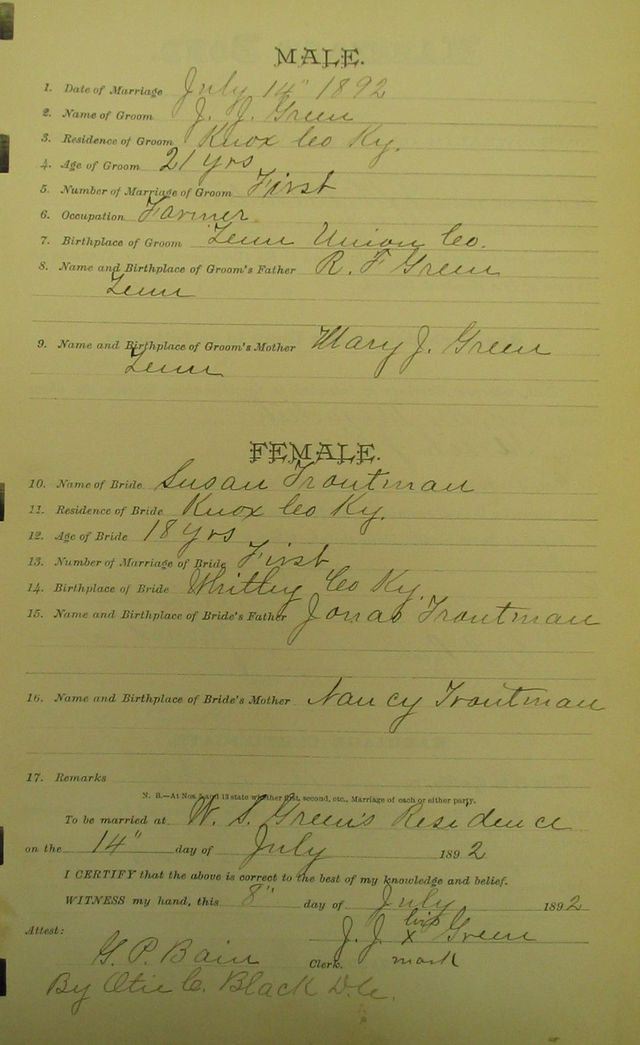 MALE.
1. Date of Marriage July 14" 1892
2. Name of Groom J. J. Green
3. Residence of Groom Knox Co Ky.
4. Age of Groom 21 yrs
5. Number of Marriage of Groom First
6. Occupation Farmer
7. Birthplace of Groom Tenn Union Co.
8. Name and Birthplace of Groom's Father R. F Green
Tenn
9. Name and Birthplace of Groom's Mother Mary J. Green
Tenn
FEMALE.
10. Name of Bride Susan Troutman
11. Residence of Bride Knox Co Ky.
12. Age of Bride 18 yrs
13. Number of Marriage of Bride First
14. Birthplace of Bride Whitley Co Ky.
15. Name and Birthplace of Bride's Father Jonas Troutman
16. Name and Birthplace of Bride's Mother Nancy Troutman
17. Remarks
N. B.—At Nos. 5 and 13 state whether first, second, etc., Marriage of each or either party.
To be married at W. S. Green's Residence
on the 14" day of July 1892
I CERTIFY that the above is correct to the best of my knowledge and belief.
WITNESS my hand, this 8" day of July 1892
his
J. J. x Green
Attest:
G. P. Bain Clerk. mark
By Otie C. Black D.C.